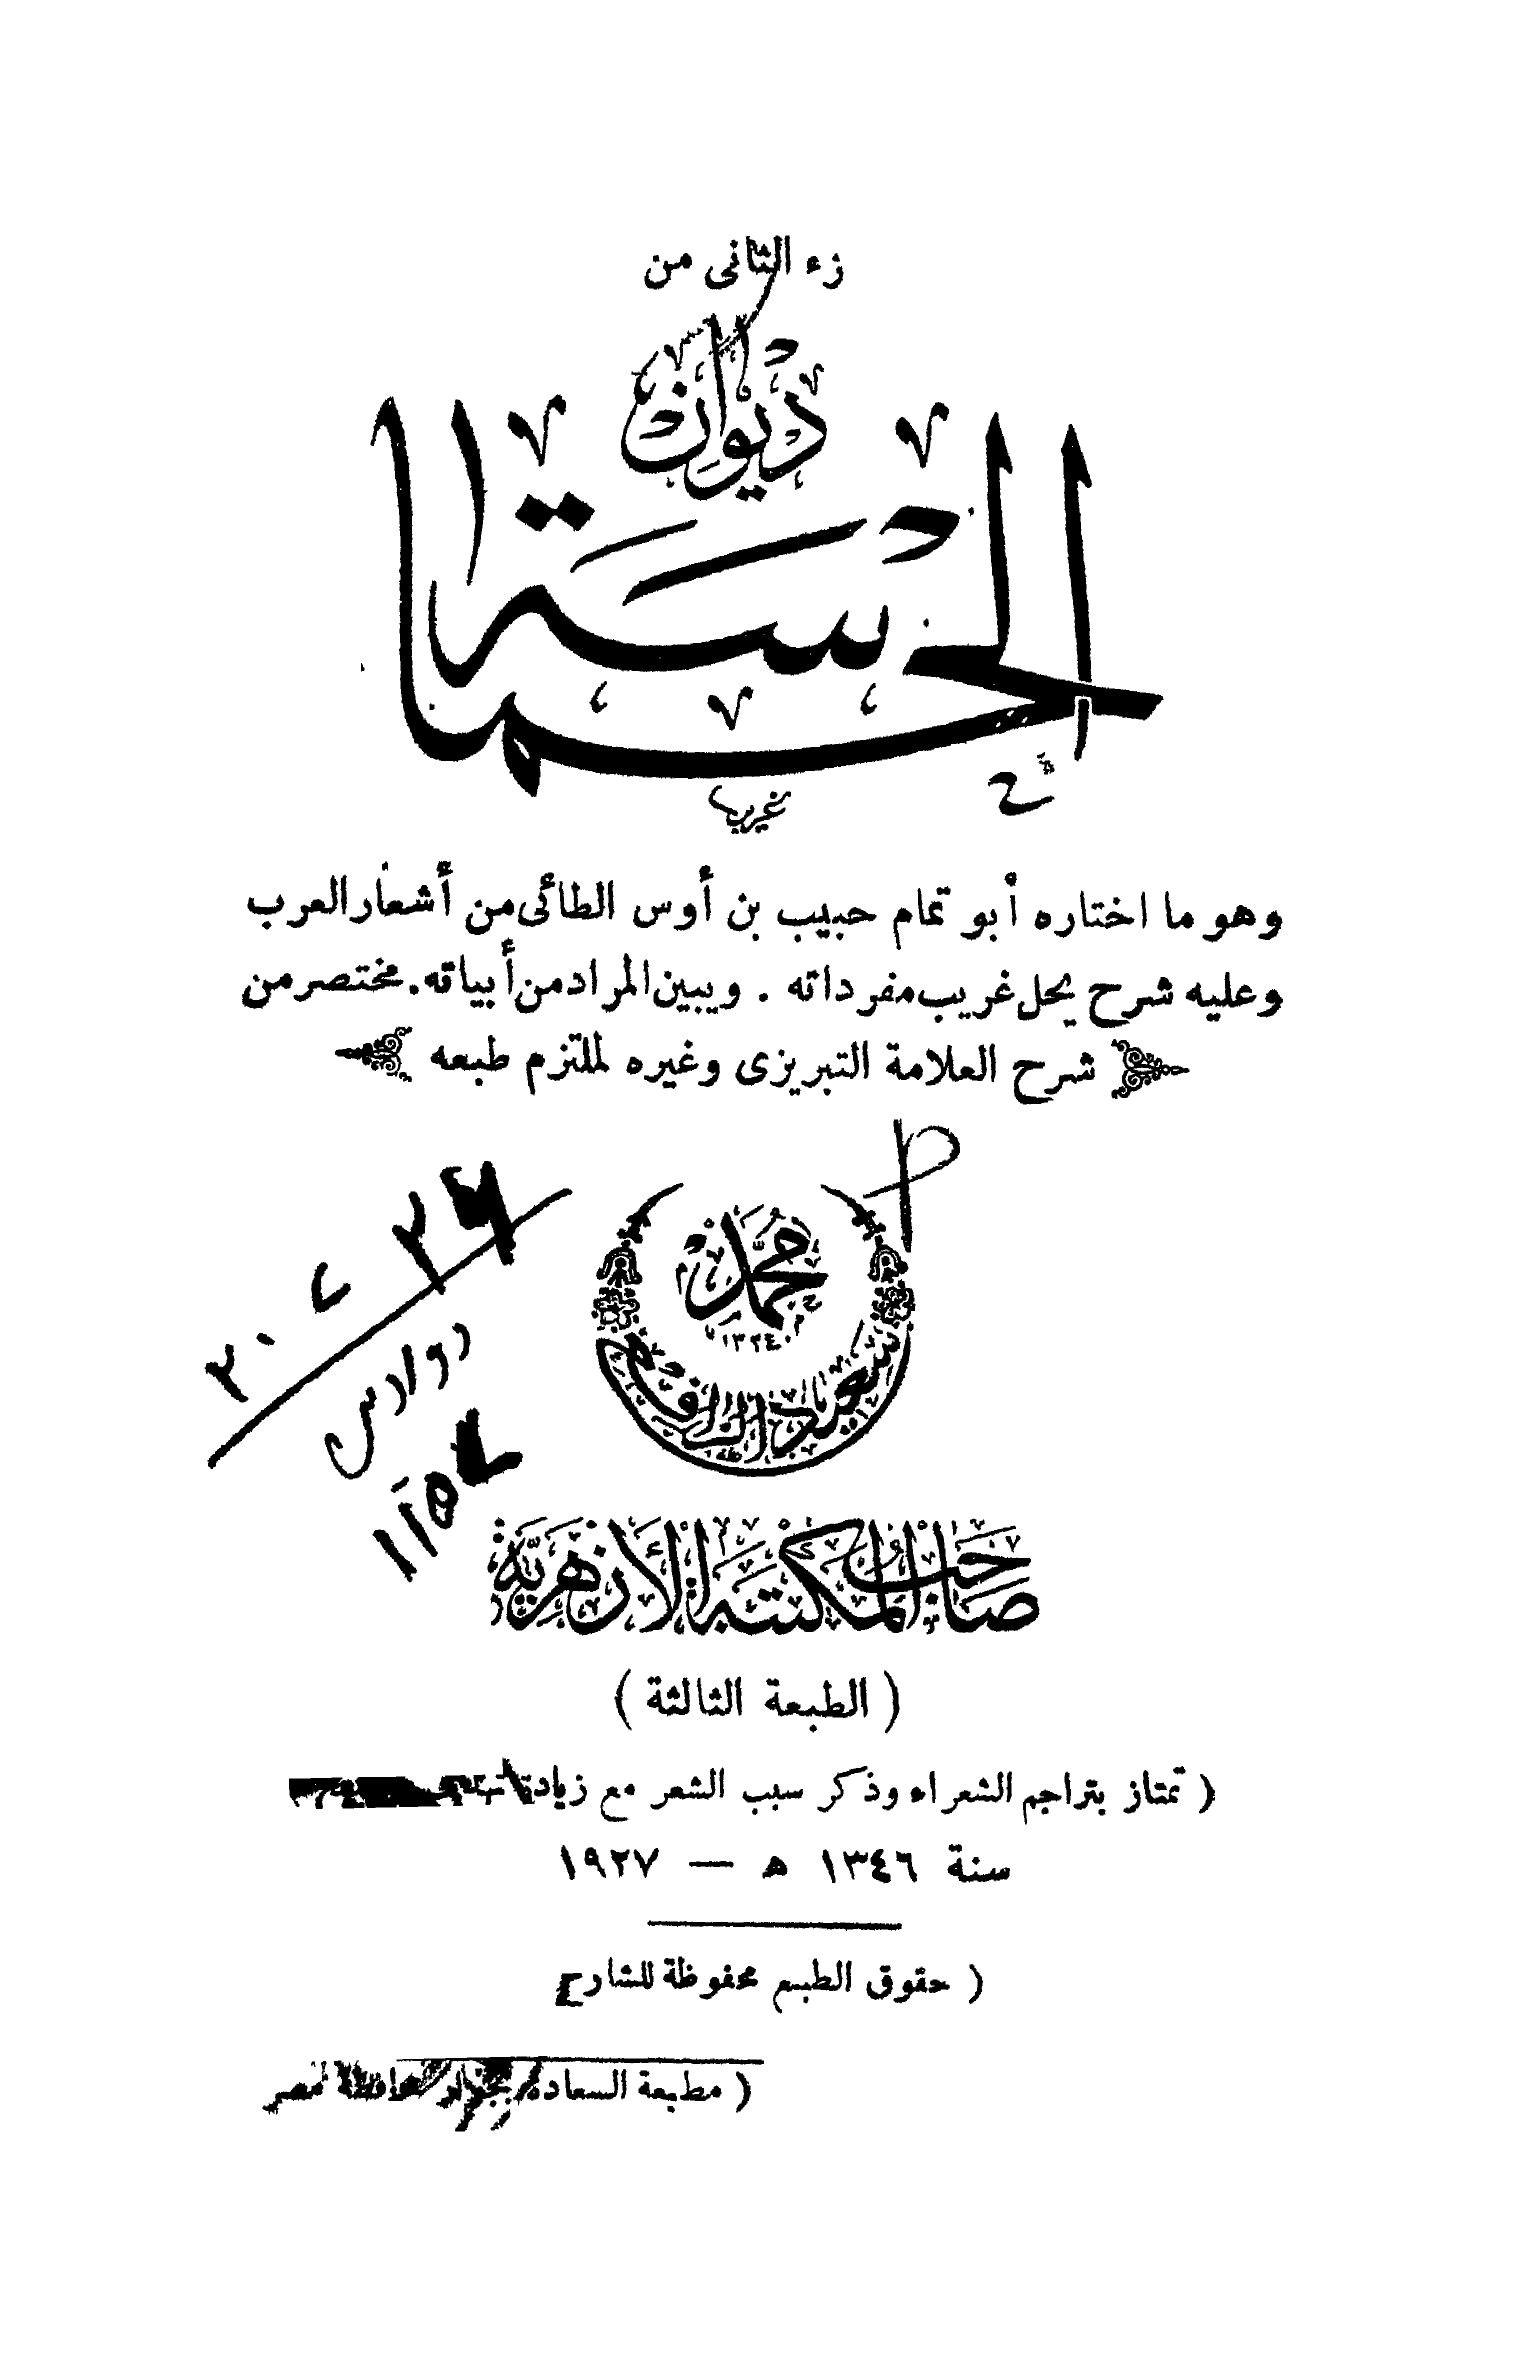 زء الثانى من
ديوان
الحماسة
وهو ما اختاره أبو تمام حبيب بن أوس الطائى من أشعار العرب
وعليه شرح يحل غريب مفرداته . ويبين المراد من أبياته . مختصر من
شرح العلامة التبريزى وغيره لملتزم طبعه
محمد
سعيد الرافعى
صاحب المكتبة الأزهرية
( الطبعة الثالثة )
( تمتاز بتراجم الشعراء وذكر سبب الشعر مع زيادة
سنة ١٣٤٦ هـ — ١٩٢٧
( حقوق الطبع محفوظة للشارح
( مطبعة السعادة بجوار محافظة مصر